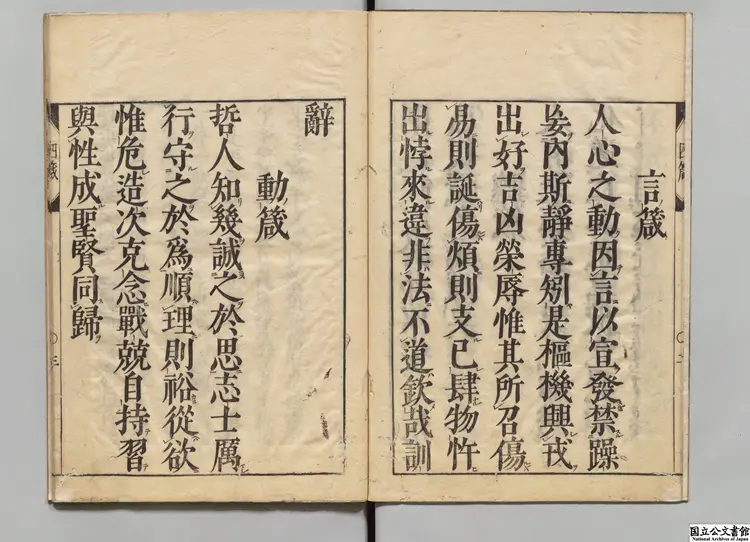 言箴
人心之動因言以宣發禁躁
妄内斯靜專矧是樞機興戎
出好吉凶榮辱惟其所召傷
易則誕傷煩則支己肆物忤
出悖來違非法不道欽哉訓
辭
動箴
哲人知幾誠之於思志士厲
行守之於爲順理則裕從欲
惟危造次克念戰兢自持習
與性成聖賢同歸
四箴
三
国立公文書館
National Archives of Japan